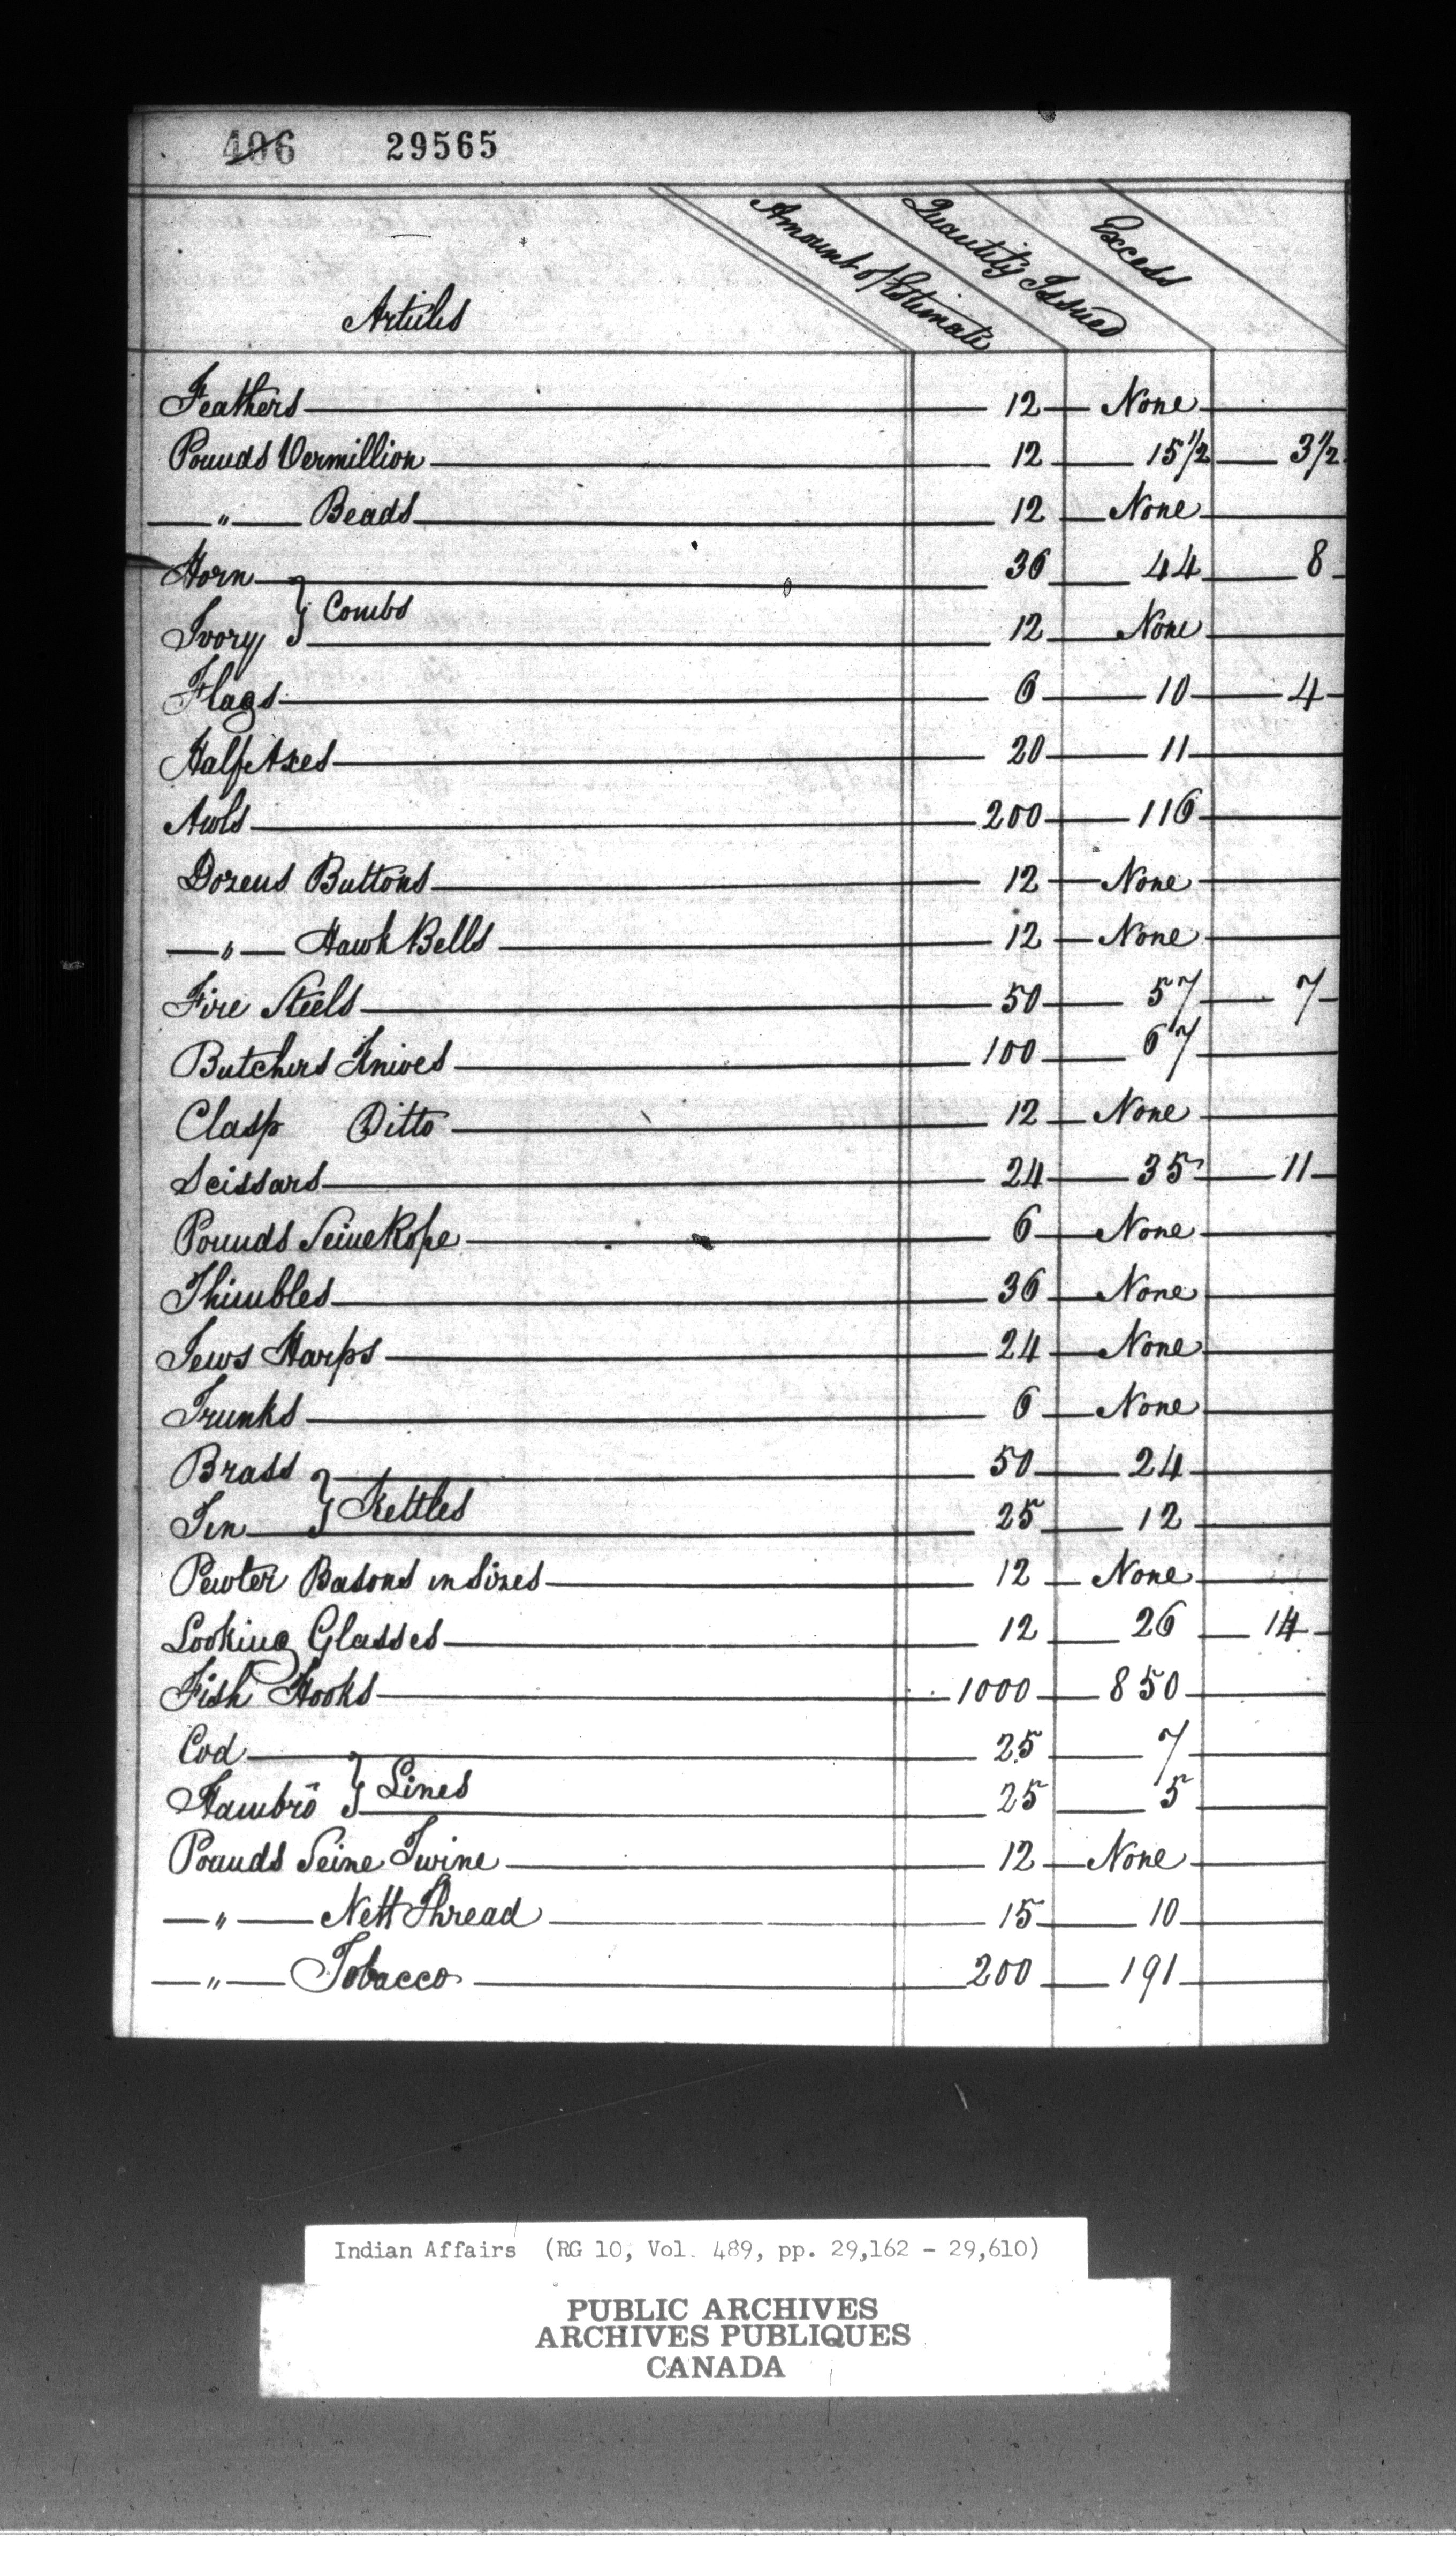 406 29565
Articles Amount of Estimate Quantity Issued Excess
Feathers 12 None
Pounds Vermillion 12 15 1/2 3 1/2
" Beads 12 None
Horn } Combs 36 44 8
Ivory } 12 None
Flags 6 10 4
Half Axes 20 11
Awls 200 116
Dozens Buttons 12 None
" Hawk Bells 12 None
Fire Steels 50 57 7
Butchers Knives 100 67
Clasp Ditto 12 None
Scissars 24 35 11
Pounds Seine Rope 6 None
Thimbles 36 None
Jews Harps 24 None
Trunks 6 None
Brass } Kettles 50 24
Tin } 25 12
Pewter Basons in Sizes 12 None
Looking Glasses 12 26 14
Fish Hooks 1000 850
Cod } Lines 25 7
Hambro } 25 5
Pounds Seine Twine 12 None
" Nett Thread 15 10
" Tobacco 200 191
Indian Affairs (RG 10, Vol. 489, pp. 29,162 - 29,610)
PUBLIC ARCHIVES
ARCHIVES PUBLIQUES
CANADA